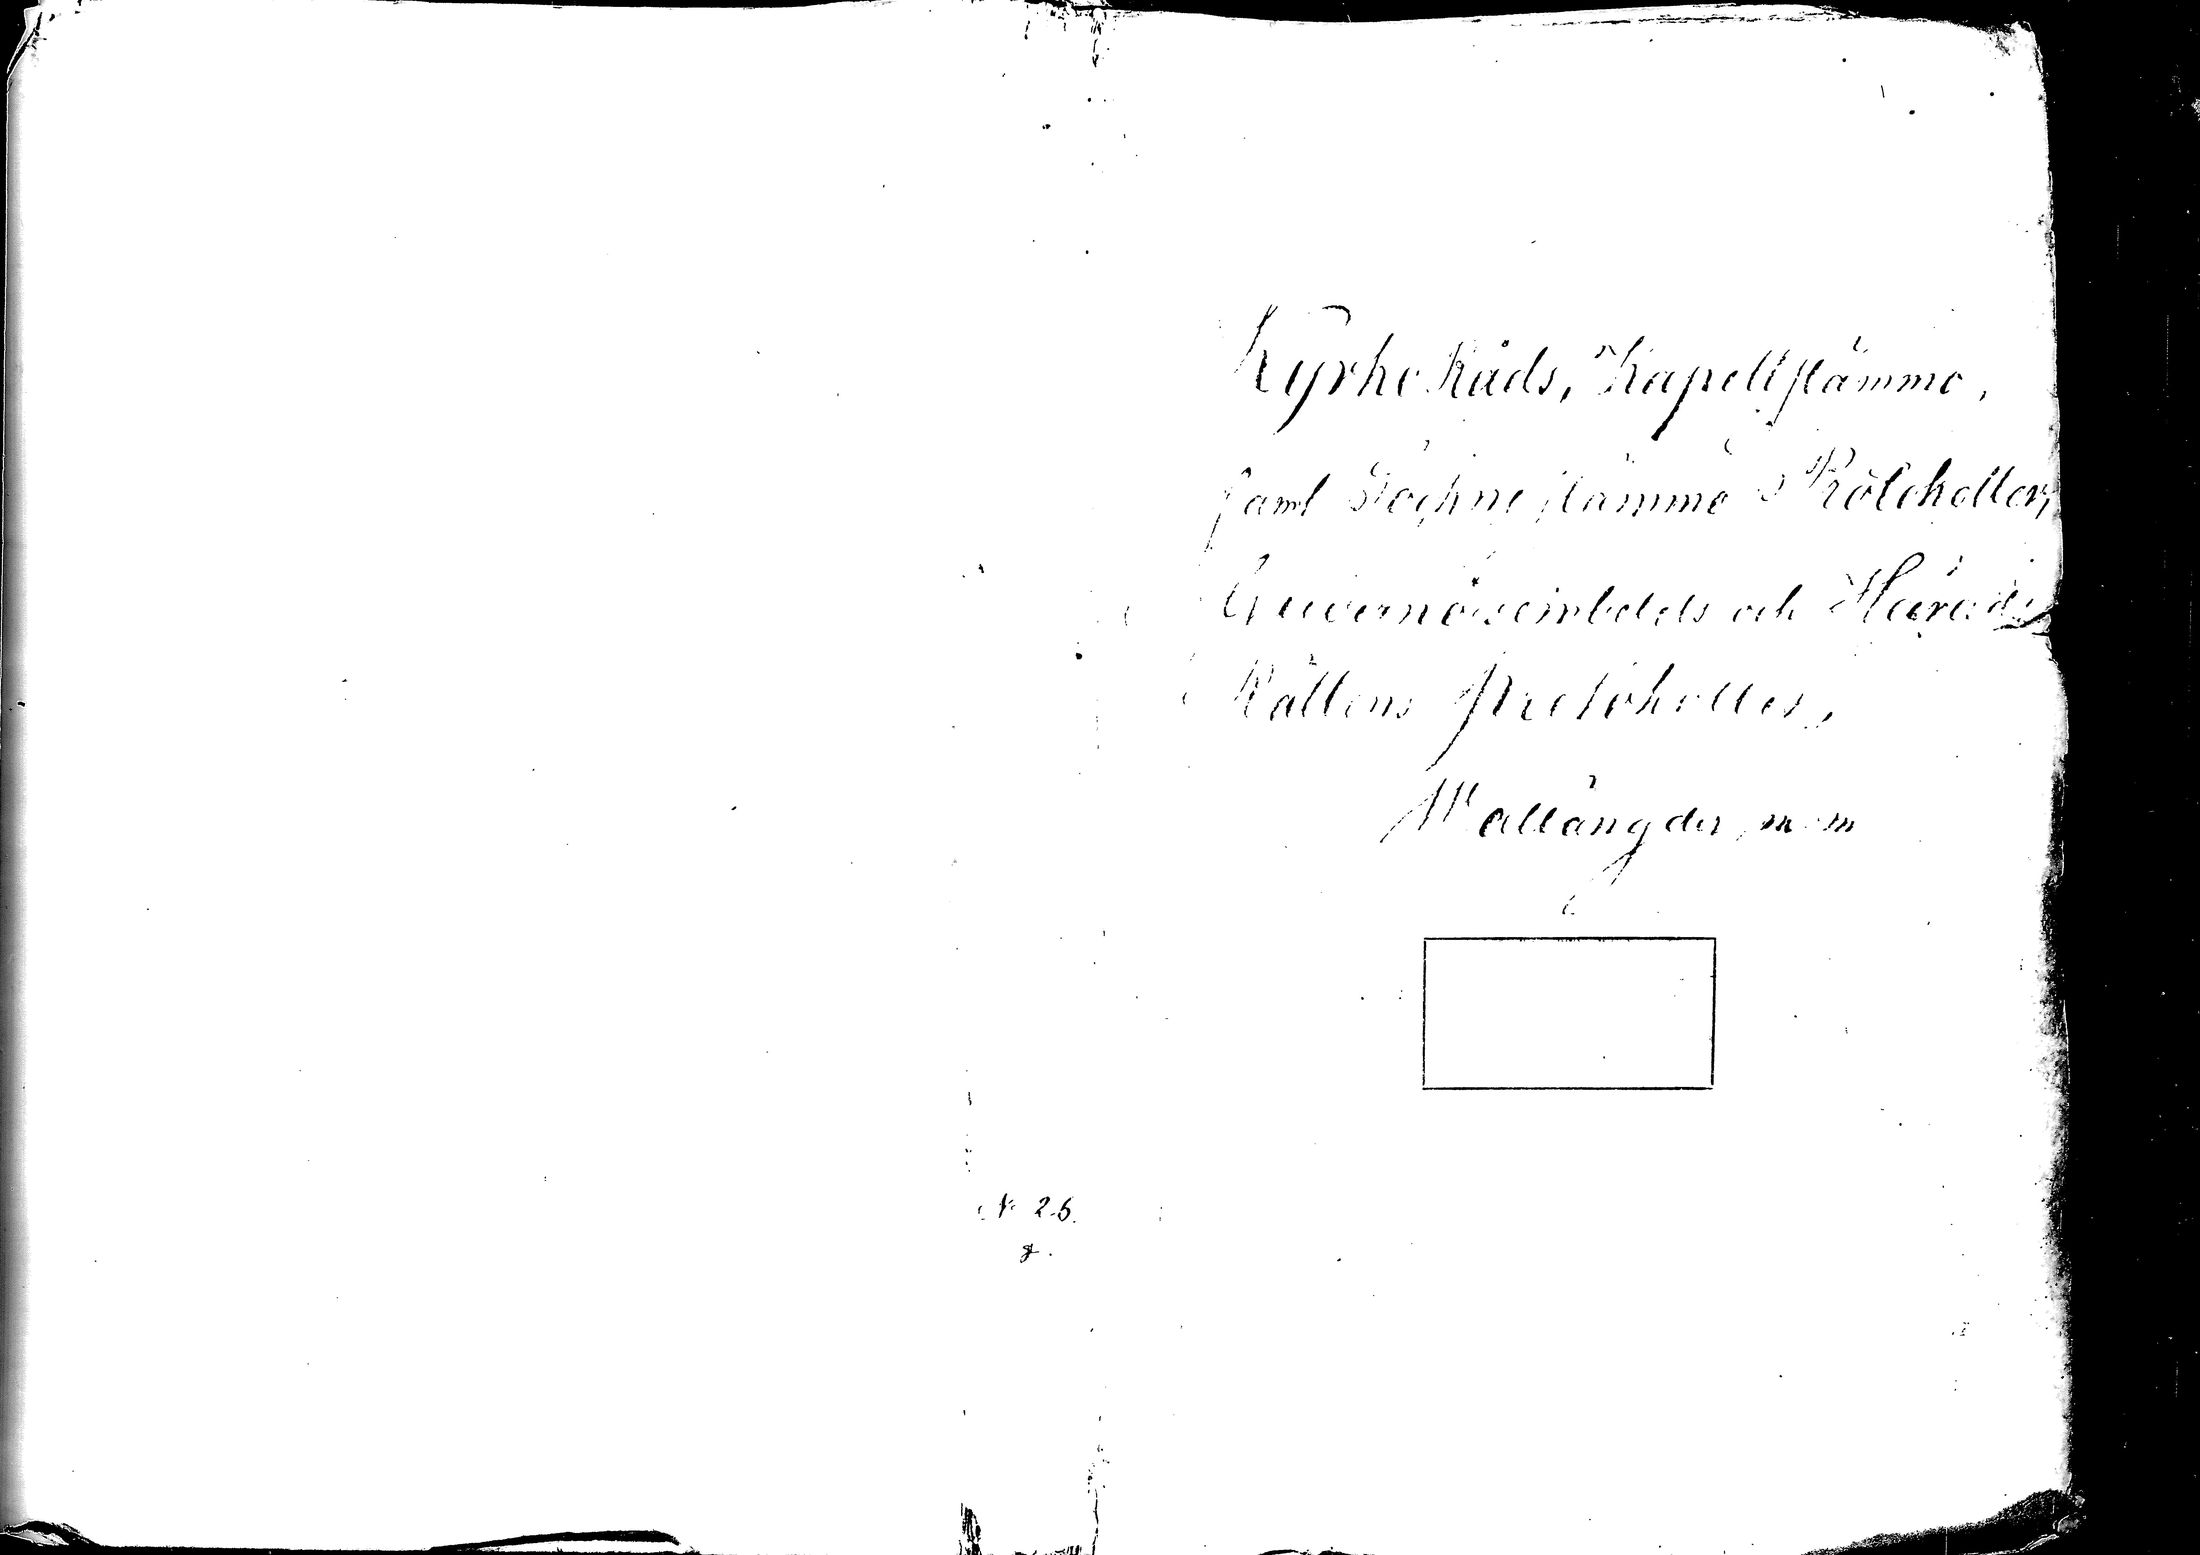 Kyrko Råds, Kapellstämmo,
samt Sockne stämmo Protokoller,
Guvernörsembetets och Härads
Rättens Protokoller,
Mallängder, m m
No 26.